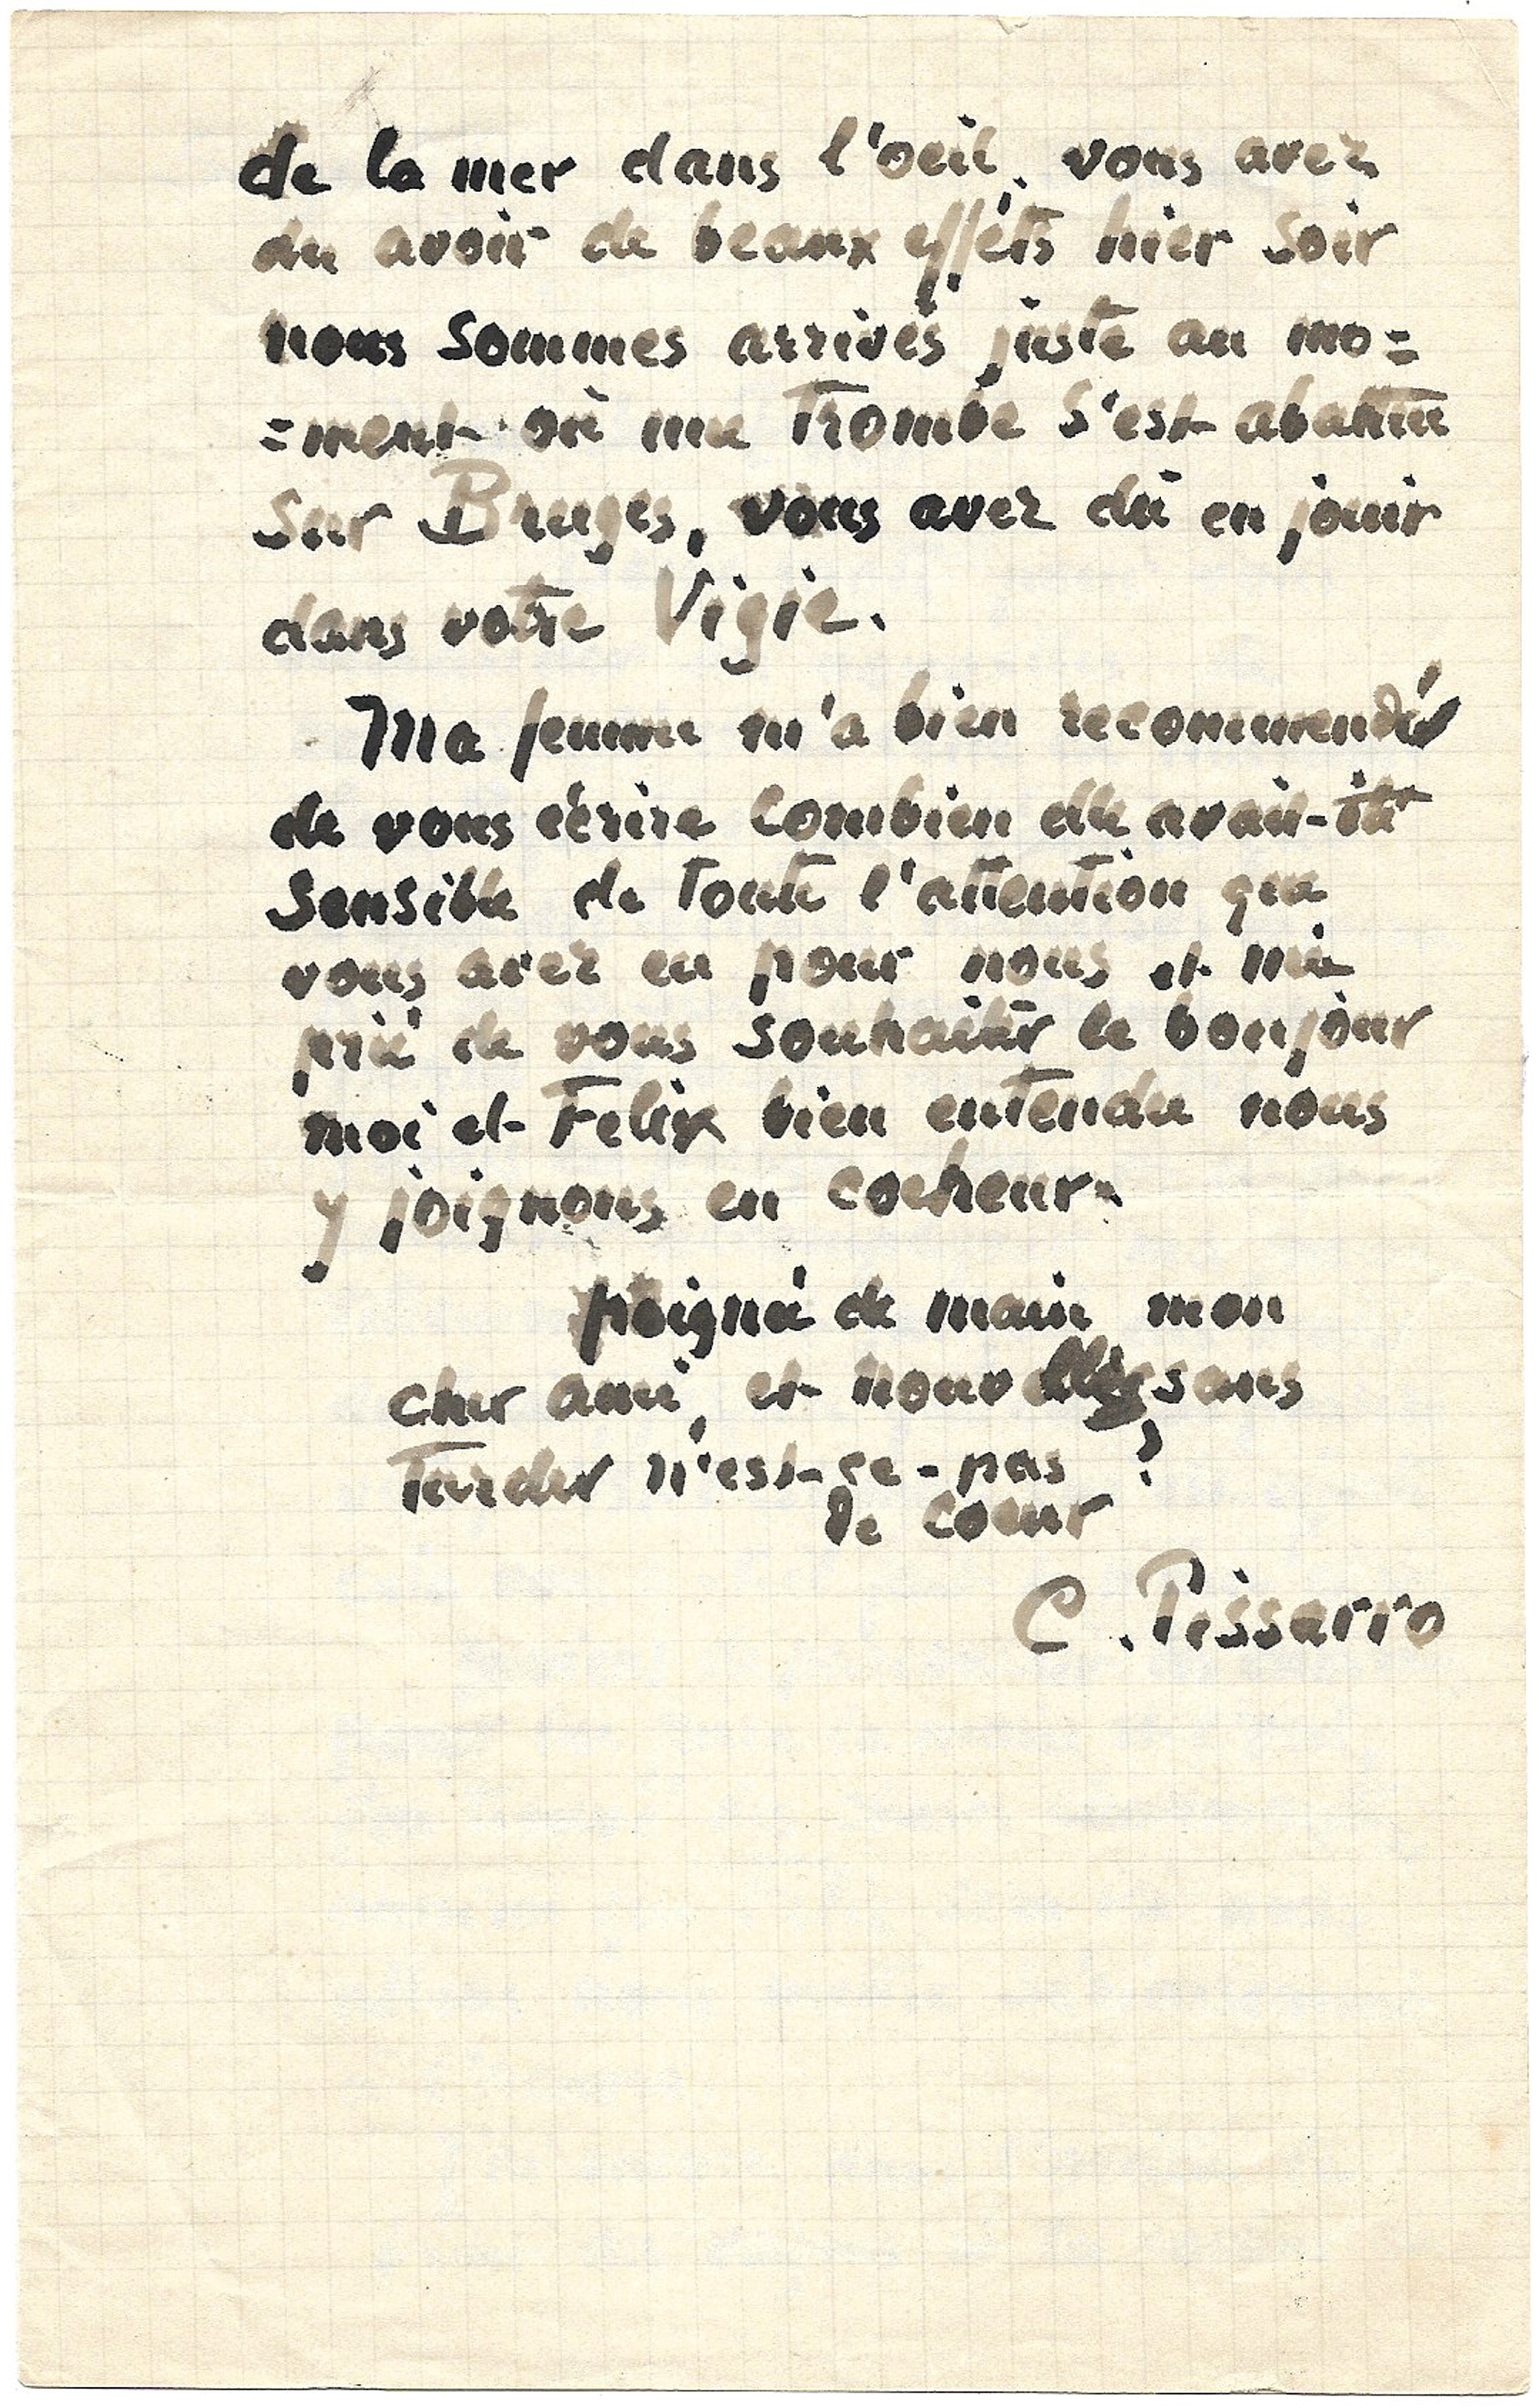 de la mer dans l'oeil, vous avez
du avoir de beaux effets hier soir
nous sommes arrivés juste au mo=
=ment où une Trombe s'est abattue
sur Bruges, vous avez dû en jouir
dans votre Vigie.
Ma femme m'a bien recommendé
de vous écrire combien elle avait-été
sensible de toute l'attention que
vous avez eu pour nous et m'a
prié de vous souhaiter le bonjour
moi et Felix bien entendu nous
y joignons en coeheur.
poignée de main mon
cher ami, et nouvelles sans
Tarder n'est-ce-pas ?
de coeur
C. Pissarro